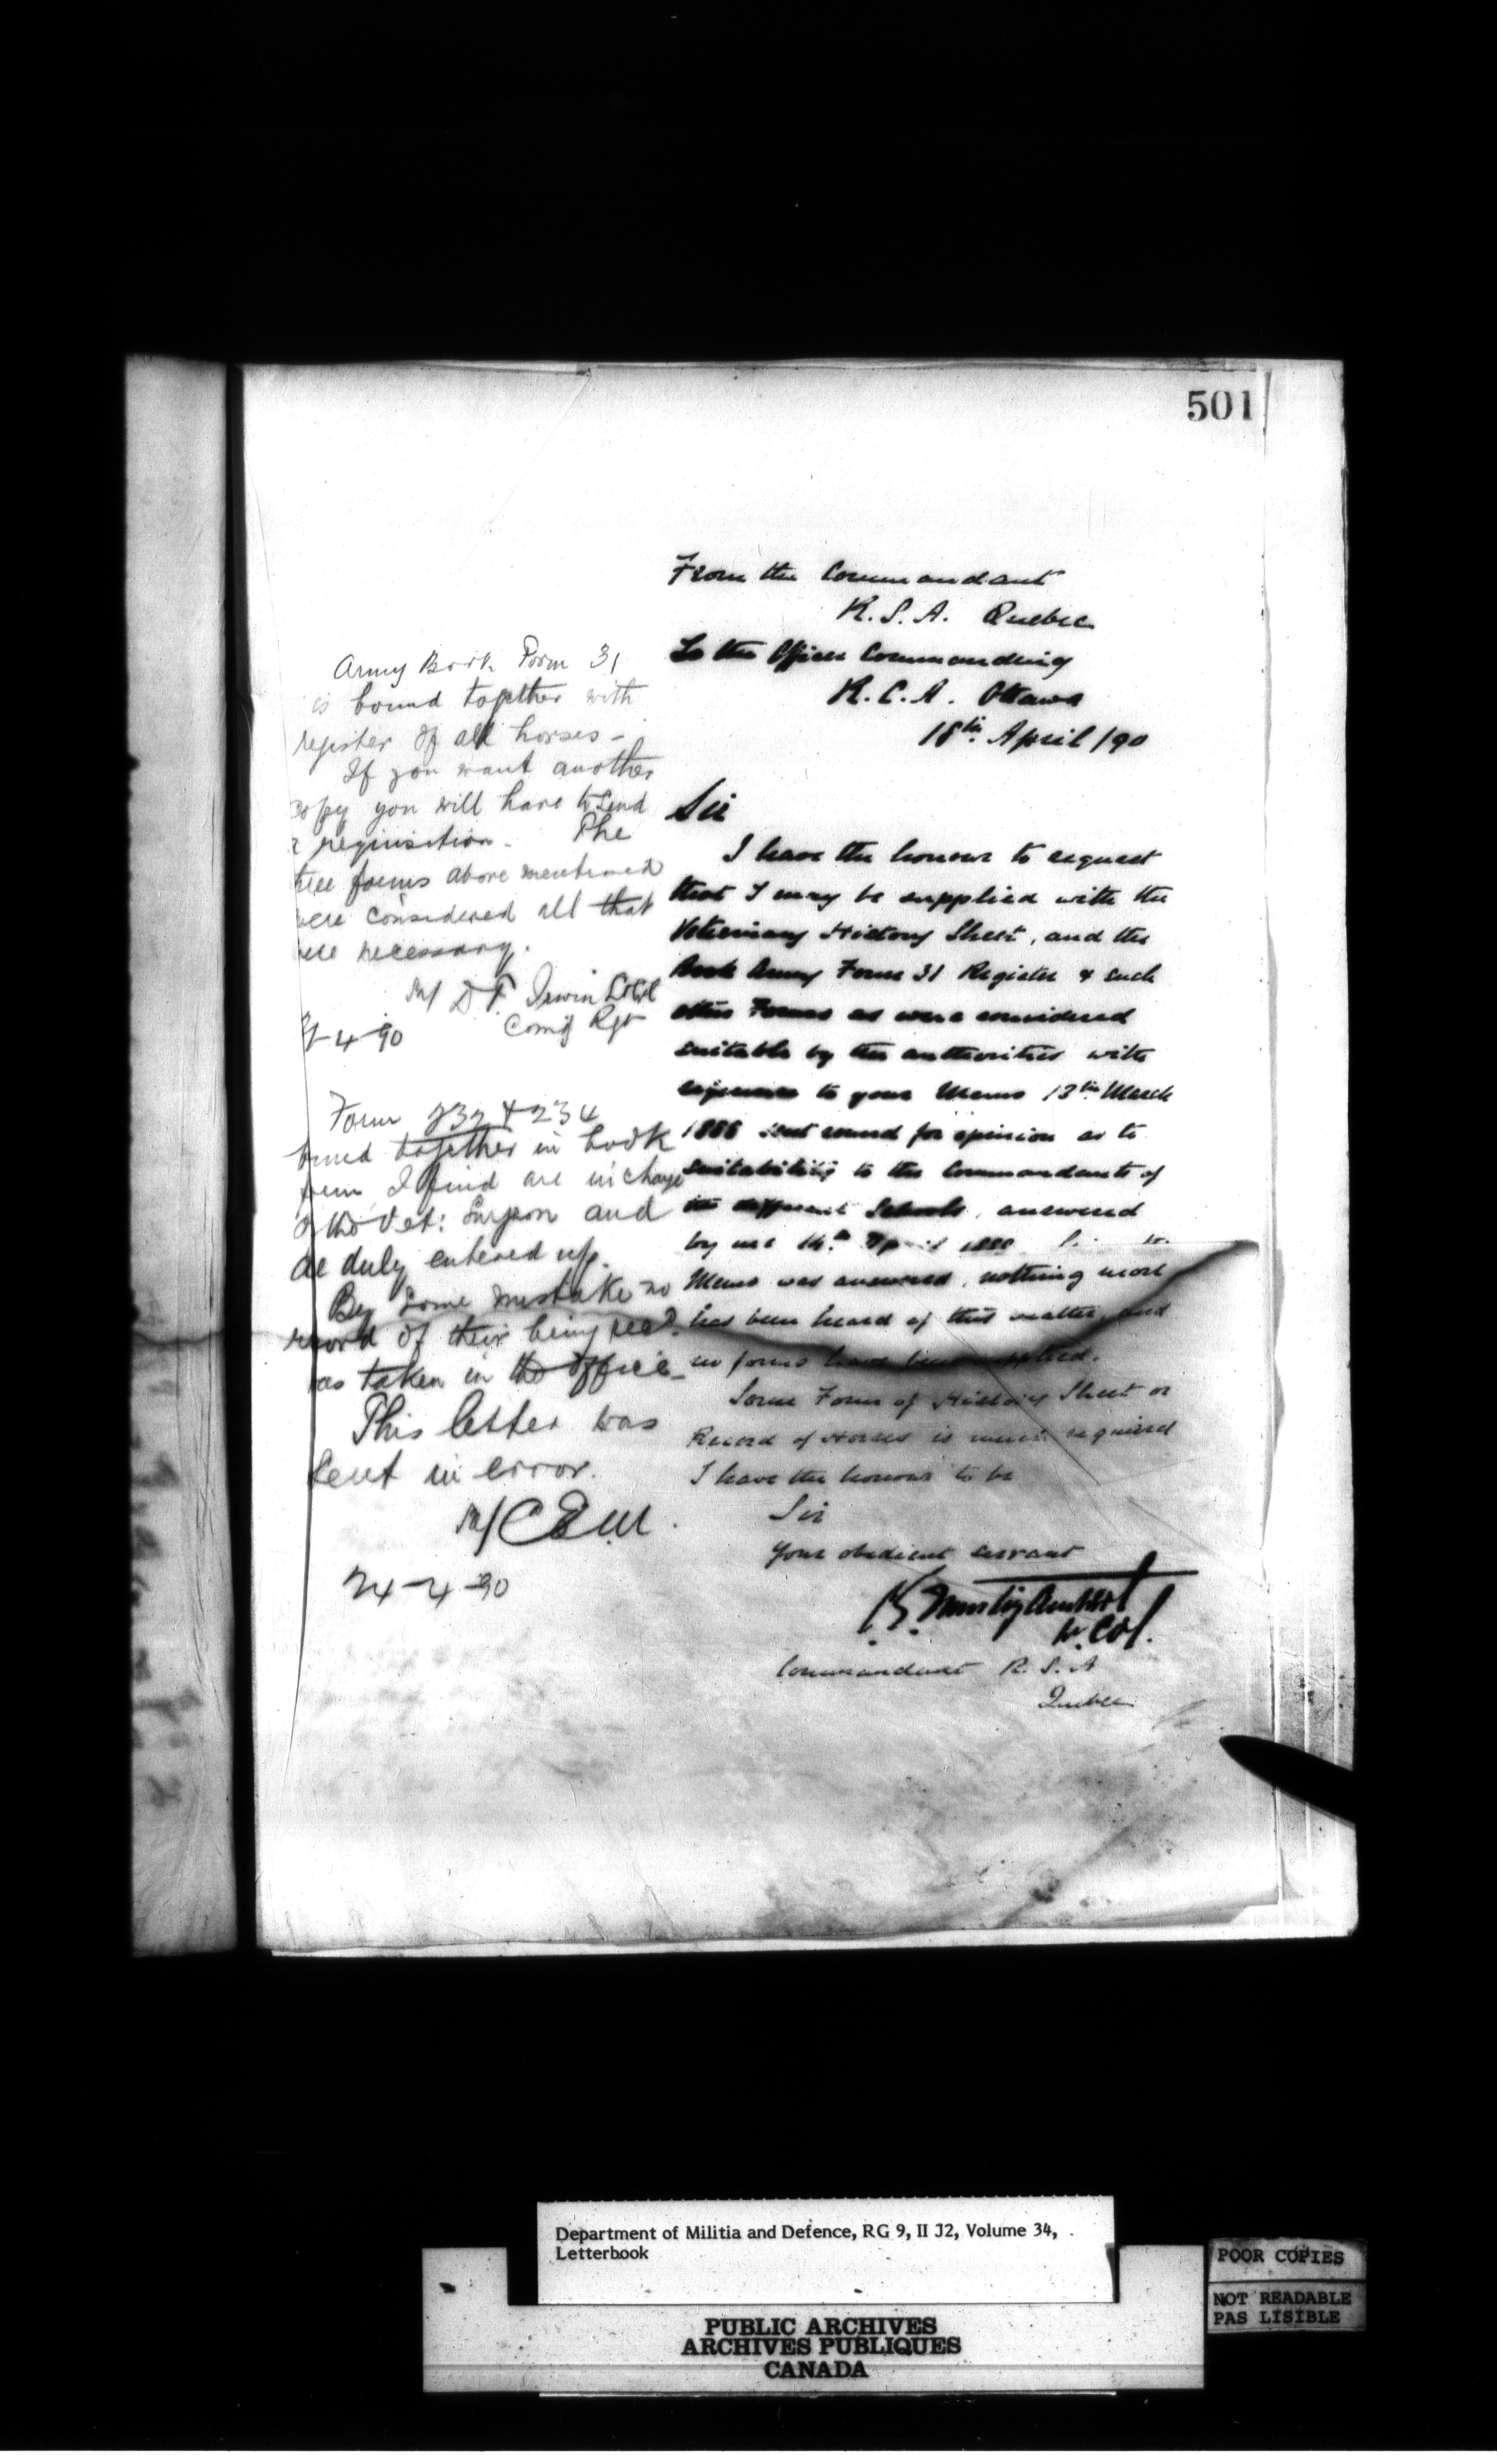 501
From the Commandant
R.S.A. Quebec
To the Officer Commanding
R.C.A. Ottawa
18th April /90
Sir
I have the honour to request
that I may be supplied with the
Veterinary History Sheet, and the
Book Army Form 31 Register & such
other Forms as were considered
suitable by the authorities with
reference to your Memo 13th March
1888 sent round for opinion as to
suitability to the Commandants of
the different Schools, answered
by me 14th April
Memo was answered, nothing more
has been heard of this matter, and
no forms have been supplied.
Some Form of History Sheet or
Record of Horses is much required
I have the honour to be
Sir
Your obedient servant
Lt. Col.
Commandant R.S.A
Quebec
Army Book Form 31
is bound together with
register of all horses -
If you want another
copy you will have to send
a requisition. The
three forms above mentioned
were considered all that
were necessary.
D T. Irwin Lt Col
Comg Rgt
-4-90
Form 232 & 234
bound together in book
form I find are in charge
of the Vet: Surgeon and
are duly entered up.
By some mistake no
record of their being recd.
was taken in the office -
This letter was
sent in error.
24-4-90
Department of Militia and Defence, RG 9, II J2, Volume 34,
Letterbook
PUBLIC ARCHIVES
ARCHIVES PUBLIQUES
CANADA
POOR COPIES
NOT READABLE
PAS LISIBLE